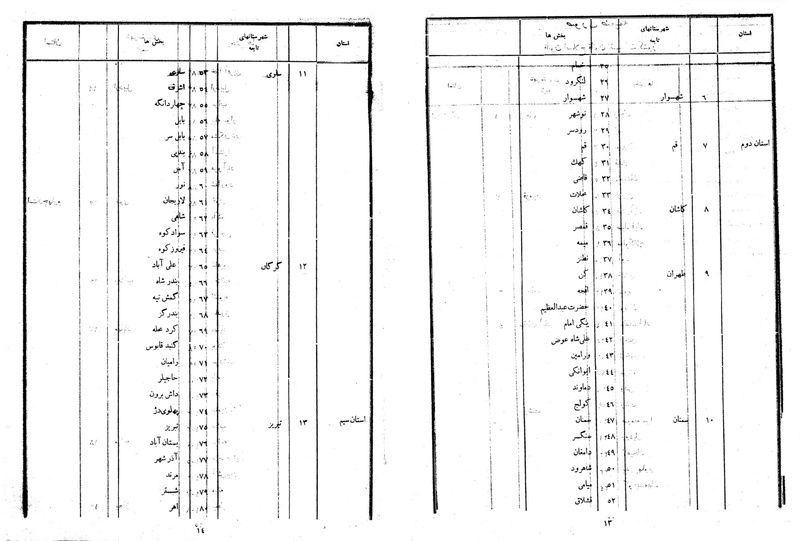 استان
شهرستانهای تابعه
بخش ها
۲۵
۲۶ لنگرود
۶ شهسوار ۲۷ شهسوار
۲۸ نوشهر
۲۹ رودسر
استان دوم ۷ قم ۳۰ قم
۳۱ کهک
۳۲
۳۳
۸ کاشان ۳۴ کاشان
۳۵ قمصر
۳۶ میمه
۳۷ نطنز
۹ طهران ۳۸ کن
۳۹ افجه
۴۰ حضرت عبدالعظیم
۴۱ ینکی امام
۴۲ علی شاه عوض
۴۳ ورامین
۴۴ ایوانکی
۴۵ دماوند
۴۶
۱۰ سمنان ۴۷ سمنان
۴۸ سنگسر
۴۹ دامغان
۵۰ شاهرود
۵۱ میامی
۵۲ قشلاق
۱۳
استان
شهرستانهای تابعه
بخش ها
۱۱ ساری ۵۳ ساری
۵۴
۵۵ چهاردانگه
۵۶ بابل
۵۷ بابل سر
۵۸ بندپی
۵۹ آمل
۶۰ نور
۶۱ لاریجان
۶۲ شاهی
۶۳ سوادکوه
۶۴ فیروزکوه
۱۲ گرگان ۶۵ علی آباد
۶۶ بندر شاه
۶۷ کمش تپه
۶۸ بندر گز
۶۹ کرد محله
۷۰ گنبد قابوس
۷۱ رامیان
۷۲ حاجیلر
۷۳ داش برون
۷۴ پهلوی دژ
استان سیم ۱۳ تبریز ۷۵ تبریز
۷۶ بستان آباد
۷۷ آذر شهر
۷۸ مرند
۷۹ شبستر
۸۰ اهر
۱۴